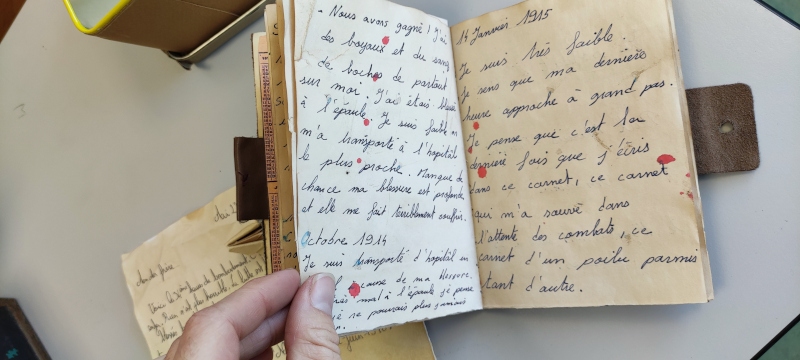 - Nous avons gagné ! J'ai
des boyaux et du sang
de boches de partout
sur moi. J'ais étais blessé
à l'épaule. Je suis faible on
m'a transporté à l'hopital
le plus proche. Manque de
chance ma blessure est profonde
et elle me fait terriblement souffrir.
Octobre 1914
Je suis transporté d'hopital en
cause de ma blessure.
mal à l'épaule je pense
ne pourrais plus jamais
14 Janvier 1915
Je suis très faible.
Je sens que ma dernière
heure approche à grand pas.
Je pense que c'est la
dernière fois que j'écris
dans ce carnet, ce carnet
qui m'a sauvé dans
l'attente des combats, ce
carnet d'un poilu parmis
tant d'autre.